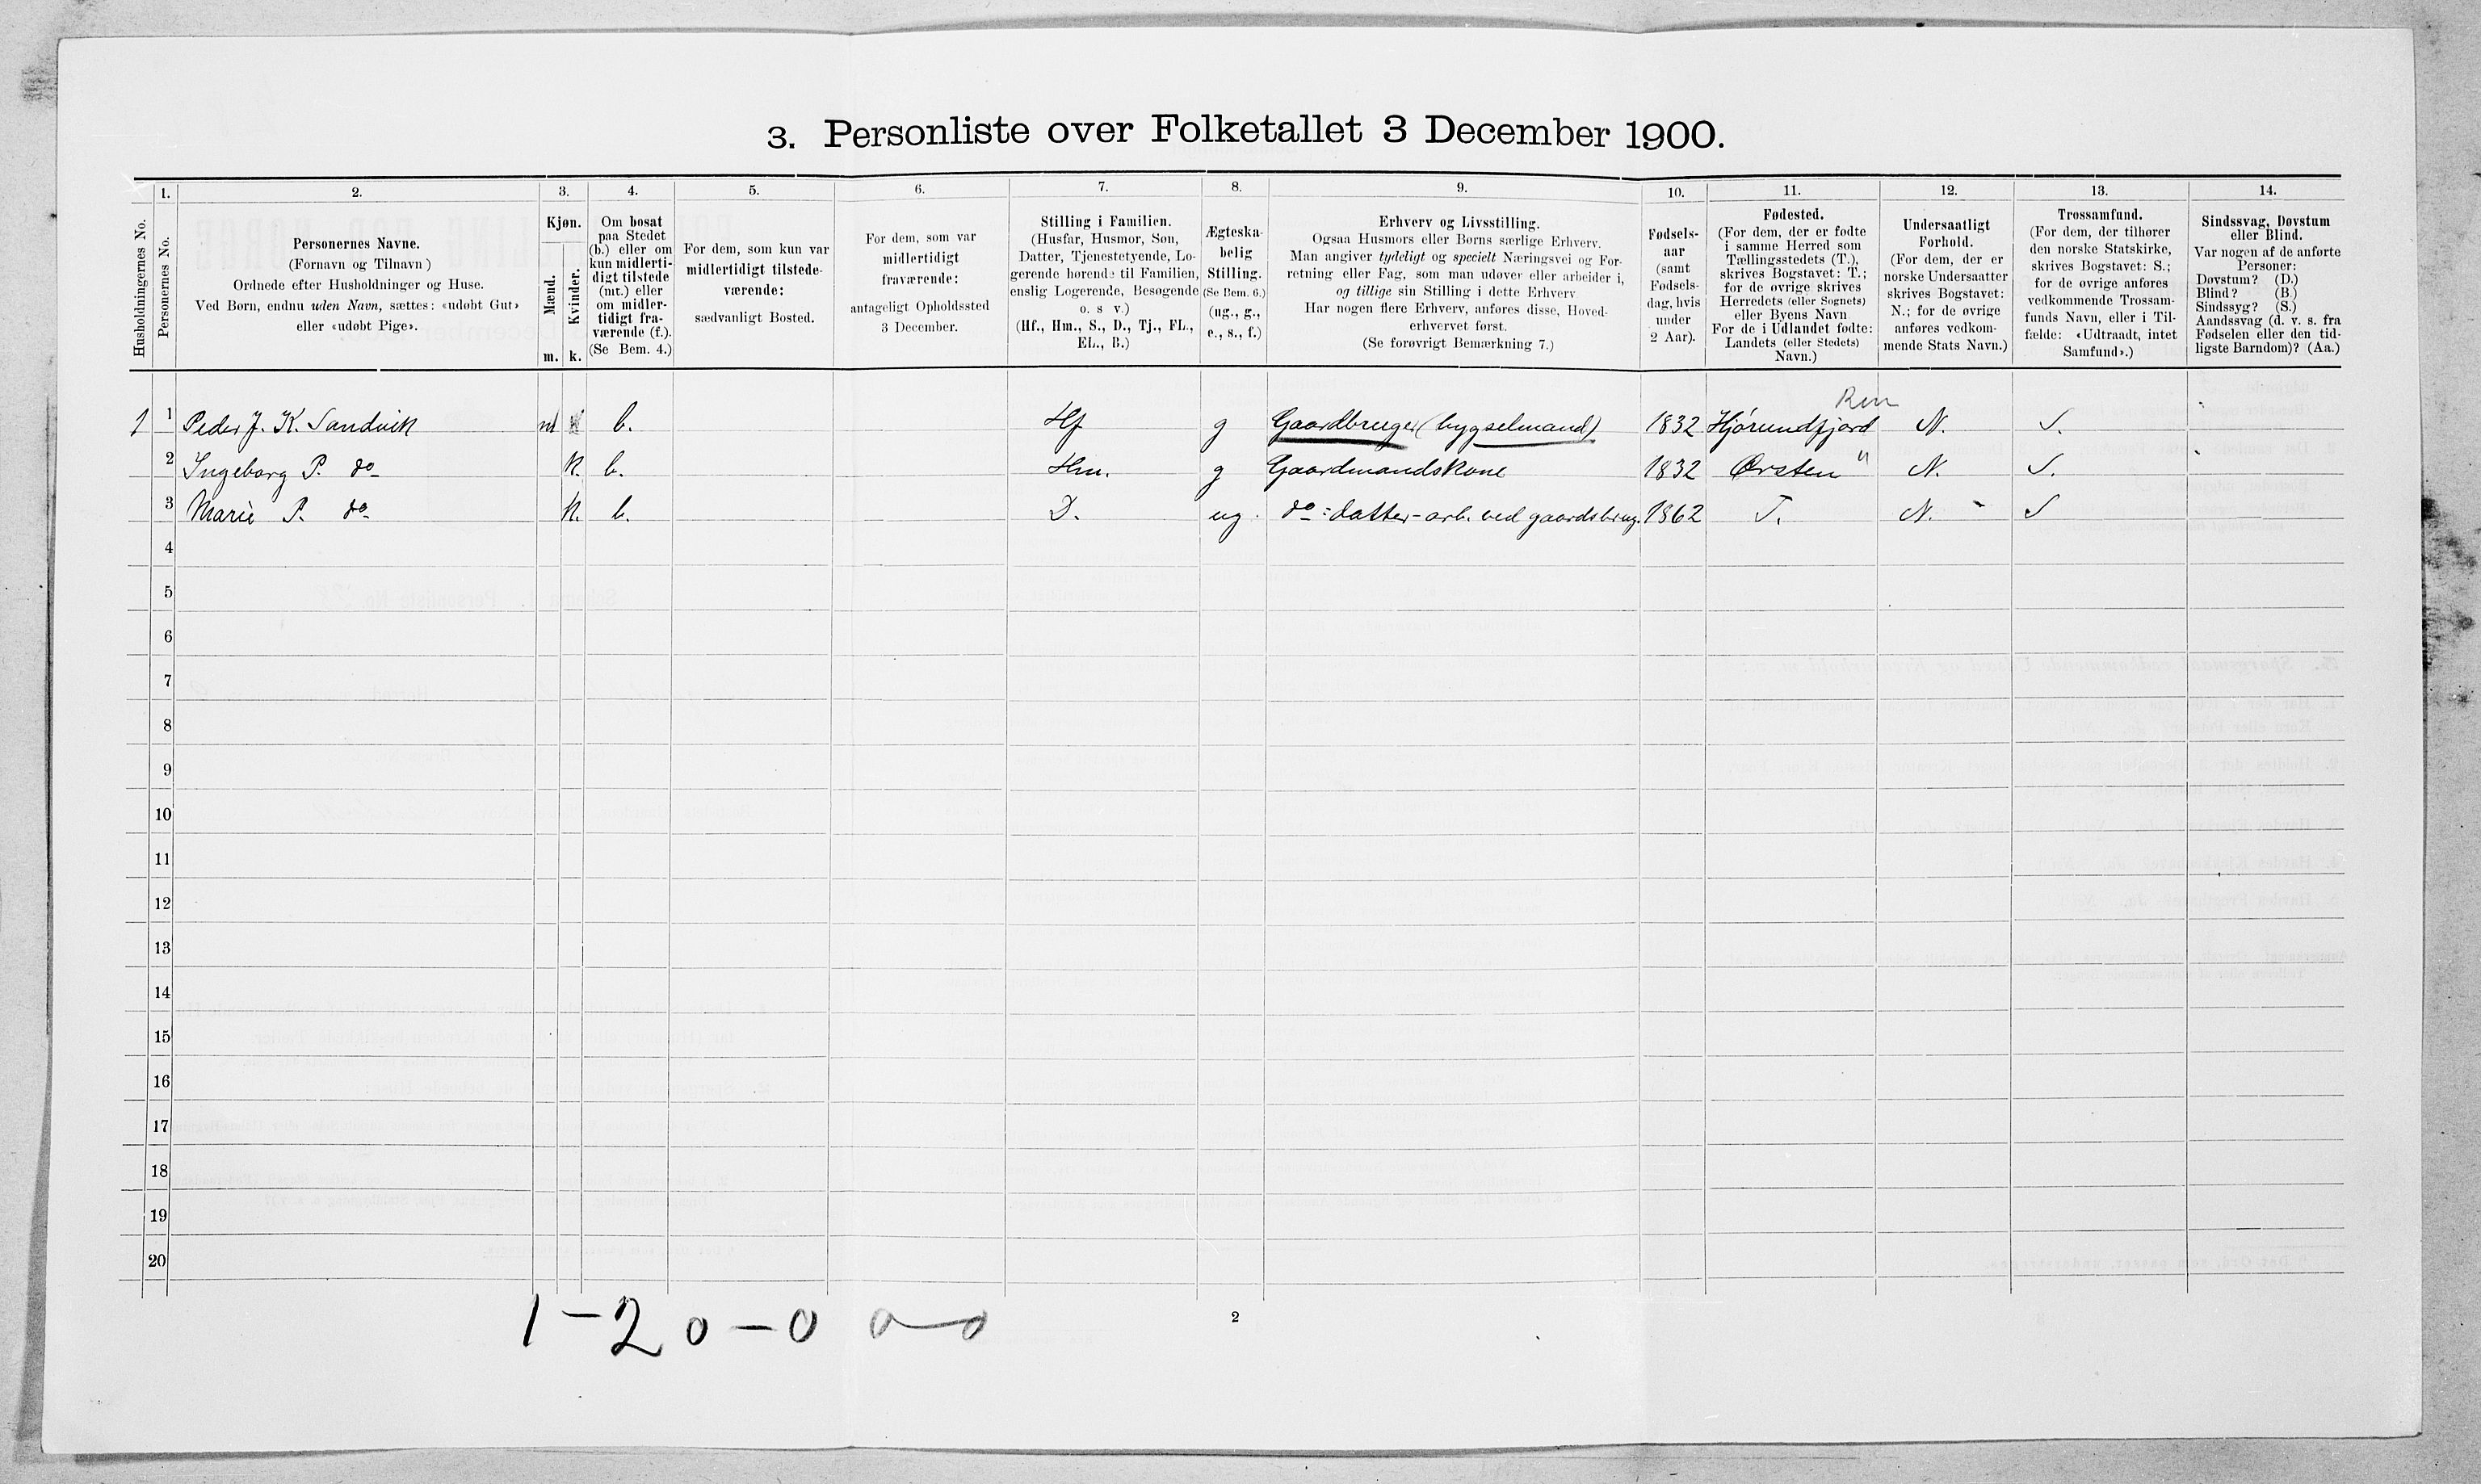 3. Personliste over Folketallet 3 December 1900.
1. 2. 3. 4. 5. 6. 7. 8. 9. 10. 11. 12. 13. 14.
Husholdningernes No.
Personernes No.
Personernes Navne.
(Fornavn og Tilnavn)
Ordnede efter Husholdninger og Huse.
Ved Børn, endnu uden Navn, sættes: «udøbt Gut»
eller «udøbt Pige».
Kjøn.
Mænd.
Kvinder.
m. k.
Om bosat
paa Stedet
(b.) eller om
kun midlerti-
digt tilstede
(mt.) eller
om midler-
tidigt fra-
værende (f.).
(Se Bem. 4.)
For dem, som kun var
midlertidigt tilstede-
værende:
sædvanligt Bosted.
For dem, som var
midlertidigt
fraværende:
antageligt Opholdssted
3 December.
Stilling i Familien.
(Husfar, Husmor, Søn,
Datter, Tjenestetyende, Lo-
gerende hørende til Familien,
enslig Logerende, Besøgende
o. s v.)
(Hf., Hm., S., D., Tj., FL.,
EL., B.)
Ægteska-
belig
Stilling.
(Se Bem. 6.)
(ug., g.,
e., s., f.)
Erhverv og Livsstilling.
Ogsaa Husmors eller Børns særlige Erhverv.
Man angiver tydeligt og specielt Næringsvei og For-
retning eller Fag, som man udøver eller arbeider i,
og tillige sin Stilling i dette Erhverv
Har nogen flere Erhverv, anføres disse, Hoved-
erhvervet først.
(Se forøvrigt Bemærkning 7.)
Fødsels-
aar
(samt
Fødsels-
dag, hvis
under
2 Aar).
Fødested.
(For dem, der er fødte
i samme Herred som
Tællingsstedets (T.),
skrives Bogstavet: T.;
for de øvrige skrives
Herredets (eller Sognets)
eller Byens Navn
For de i Udlandet fødte:
Landets (eller Stedets)
Navn.)
Undersaatligt
Forhold.
(For dem, der er
norske Undersaatter
skrives Bogstavet:
N.; for de øvrige
anføres vedkom-
mende Stats Navn.)
Trossamfund.
(For dem, der tilhører
den norske Statskirke,
skrives Bogstavet: S.;
for de øvrige anføres
vedkommende Trossam-
funds Navn, eller i Til-
fælde: «Udtraadt, intet
Samfund».)
Sindssvag, Døvstum
eller Blind.
Var nogen af de anførte
Personer:
Døvstum? (D.)
Blind? (B.)
Sindssyg? (S.)
Aandssvag (d. v. s. fra
Fødselen eller den tid-
ligste Barndom)? (Aa.)
Rm
1 1 Peder J. K. Sandvik m b. Hf g Gaardbruger (bygselmand) 1832 Hjørundfjord N. S.
2 Ingeborg P. do k. b. Hm. g Gaardmandskone 1832 Ørsten " N. S.
3 Marie P. do k. b. D. ug. do : datter - arb. ved gaardsbrug. 1862 T. N. S
4
5
6
7
8
9
10
11
12
13
14
15
16
17
18
19
20
1 - 2 0 - 0 0 - 0
2